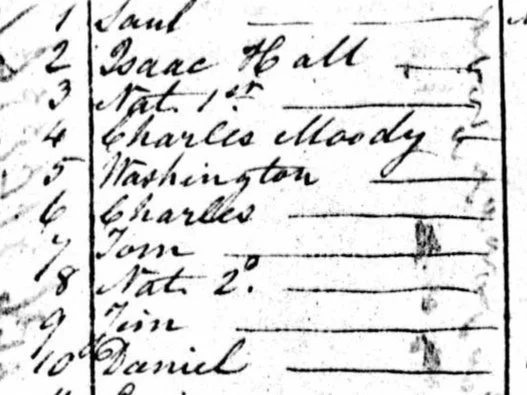 1 Saul
2 Isaac Hall
3 Nat. 1st
4 Charles Moody
5 Washington
6 Charles
7 Tom
8 Nat. 2d.
9 Jim
10 Daniel